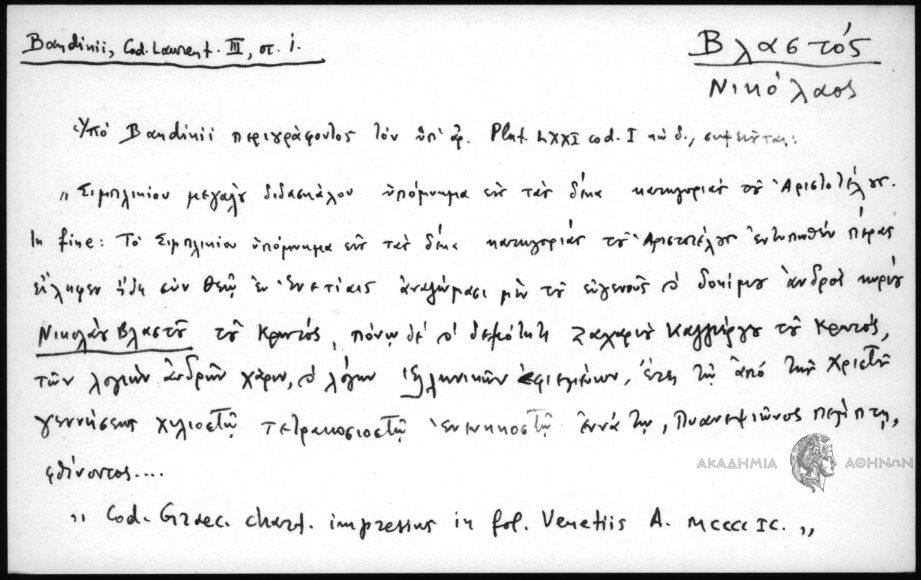 Bandinii, Cod. Laurent. III, στ. i.
Βλαστός
Νικόλαος
Ὑπὸ Bandinii περιγράφοντος τὸν ὑπ' ἀρ. Plut. LXXI cod. I κώδ.,
„ Σιμπλικίου μεγάλου διδασκάλου ὑπόμνημα εἰς τὰς δέκα κατηγορίας τοῦ Ἀριστοτέλους.
In fine: Τὸ Σιμπλικίου ὑπόμνημα εἰς τὰς δέκα κατηγορίας τοῦ Ἀριστοτέλους ἐντυπωθὲν πέρας
εἴληφεν ἤδη σὺν θεῷ ἐν Ἐνετίαις ἀναλώμασι μὲν τοῦ εὐγενοῦς ϗ δοκίμου ἀνδρὸς κυρίου
Νικολάου Βλαστοῦ τοῦ Κρητός, πόνῳ δὲ ϗ δεξιότητι Ζαχαρίου Καλλιέργου τοῦ Κρητός,
τῶν λογίων ἀνδρῶν χάριν, ϗ λόγων Ἑλληνικῶν ἐφιεμένων, ἔτει τῷ ἀπὸ τῆς Χριστοῦ
γεννήσεως χιλιοστῷ τετρακοσιοστῷ ἐνενηκοστῷ ἐννάτῳ, Πυανεψιῶνος πέμπτῃ,
φθίνοντος....
ΑΚΑΔΗΜΙΑ ΑΘΗΝΩΝ
„ Cod. Graec. chart. impressus in fol. Venetiis A. MCCCCIC. „